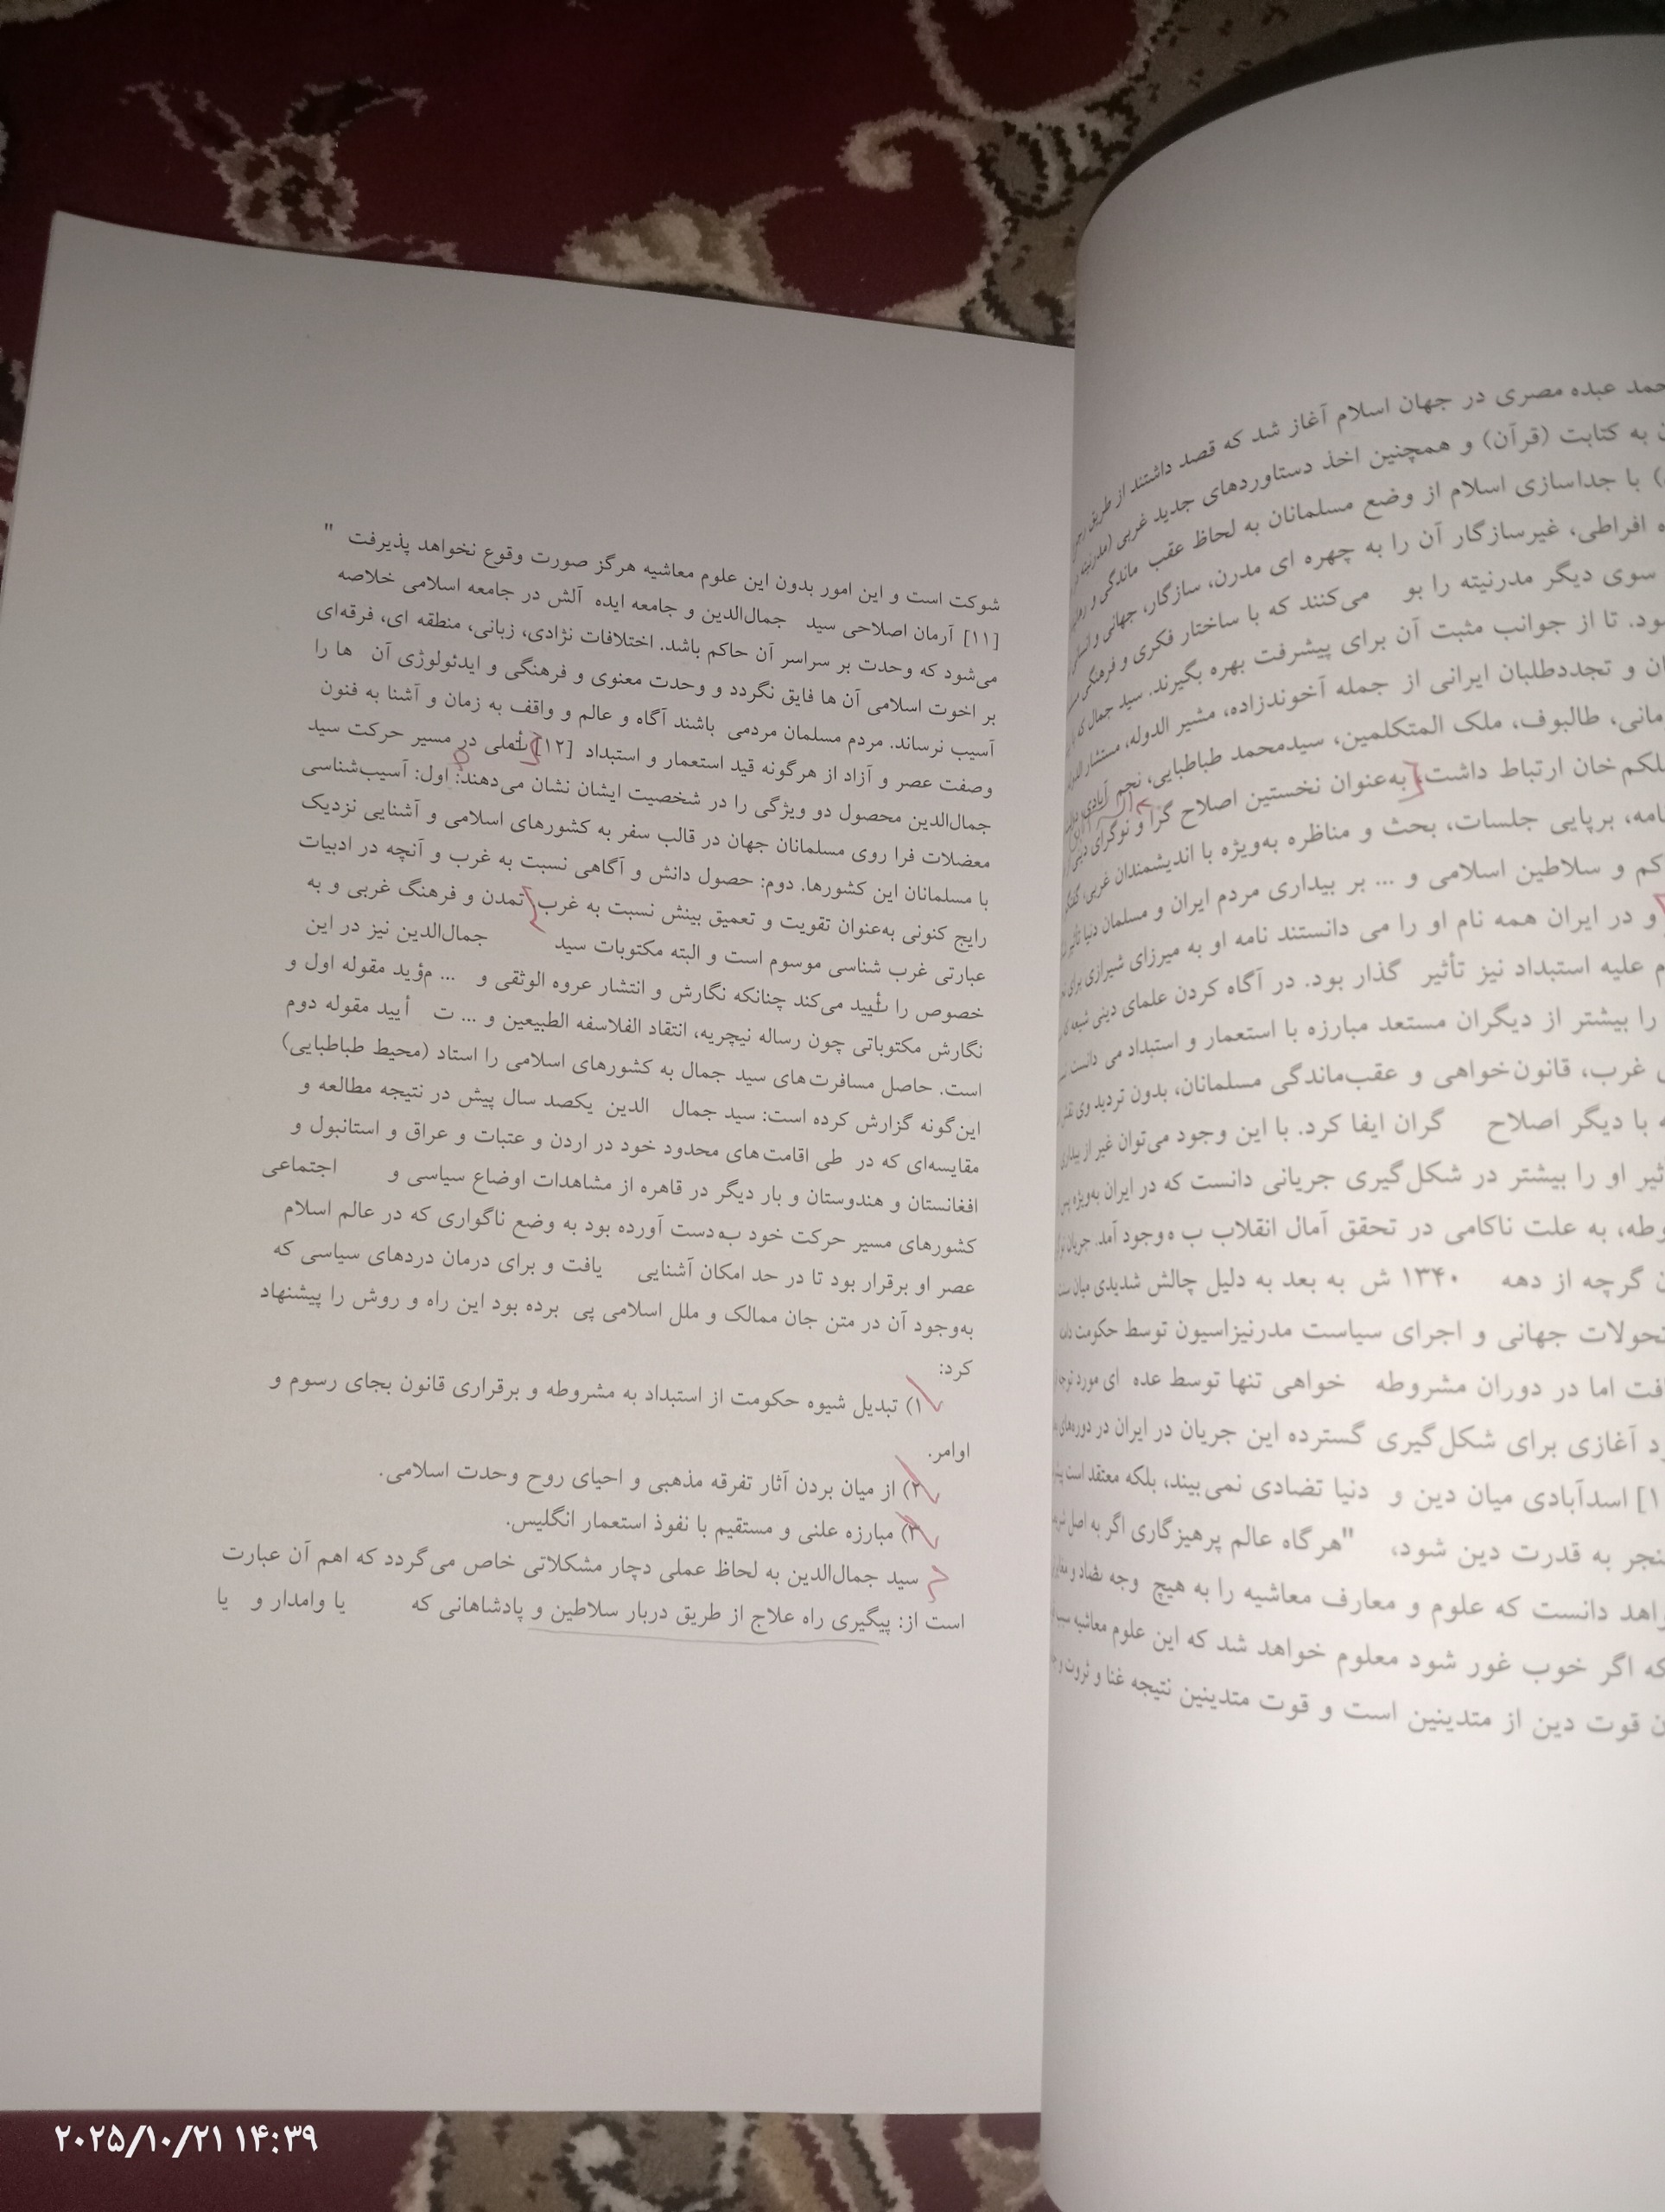 حمد عبده مصری در جهان اسلام آغاز شد که قصد داشتند از طریق
به کتابت (قرآن) و همچنین اخذ دستاوردهای جدید غربی (مدرنیته
) با جداسازی اسلام از وضع مسلمانان به لحاظ عقب ماندگی و
ه افراطی، غیرسازگار آن را به چهره ای مدرن، سازگار، جهانی و
سوی دیگر مدرنیته را بو می‌کنند که با ساختار فکری و فرهنگی
ود. تا از جوانب مثبت آن برای پیشرفت بهره بگیرند. سید جمال که
ان و تجددطلبان ایرانی از جمله آخوندزاده، مشیر الدوله، مستشار
مانی، طالبوف، ملک المتکلمین، سیدمحمد طباطبایی، نجم آبادی
لکم خان ارتباط داشت، به‌عنوان نخستین اصلاح گرا و نوگرای دینی
امه، برپایی جلسات، بحث و مناظره به‌ویژه با اندیشمندان غربی،
کم و سلاطین اسلامی و ... بر بیداری مردم ایران و مسلمان دنیا
و در ایران همه نام او را می دانستند نامه او به میرزای شیرازی برای
م علیه استبداد نیز تأثیر گذار بود. در آگاه کردن علمای دینی شیعه
را بیشتر از دیگران مستعد مبارزه با استعمار و استبداد می دانست
ی غرب، قانون‌خواهی و عقب‌ماندگی مسلمانان، بدون تردید وی
ه با دیگر اصلاح گران ایفا کرد. با این وجود می‌توان غیر از بیداری
ثیر او را بیشتر در شکل‌گیری جریانی دانست که در ایران به‌ویژه
وطه، به علت ناکامی در تحقق آمال انقلاب ب ه‌وجود آمد.
ن گرچه از دهه ۱۳۴۰ ش به بعد به دلیل چالش شدیدی میان
تحولات جهانی و اجرای سیاست مدرنیزاسیون توسط حکومت
افت اما در دوران مشروطه خواهی تنها توسط عده ای مورد
د آغازی برای شکل‌گیری گسترده این جریان در ایران در
۱] اسدآبادی میان دین و دنیا تضادی نمی‌بیند، بلکه معتقد است
نجر به قدرت دین شود، "هرگاه عالم پرهیزگاری اگر به اصل
واهد دانست که علوم و معارف معاشیه را به هیچ وجه
که اگر خوب غور شود معلوم خواهد شد که این علوم معاشیه
ن قوت دین از متدینین است و قوت متدینین نتیجه غنا و ثروت و
شوکت است و این امور بدون این علوم معاشیه هرگز صورت وقوع نخواهد پذیرفت "
[۱۱] آرمان اصلاحی سید جمال‌الدین و جامعه ایده آلش در جامعه اسلامی خلاصه
می‌شود که وحدت بر سراسر آن حاکم باشد. اختلافات نژادی، زبانی، منطقه ای، فرقه‌ای
بر اخوت اسلامی آن ها فایق نگردد و وحدت معنوی و فرهنگی و ایدئولوژی آن ها را
آسیب نرساند. مردم مسلمان مردمی باشند آگاه و عالم و واقف به زمان و آشنا به فنون
وصفت عصر و آزاد از هرگونه قید استعمار و استبداد [۱۲] تأملی در مسیر حرکت سید
جمال‌الدین محصول دو ویژگی را در شخصیت ایشان نشان می‌دهند: اول: آسیب‌شناسی
معضلات فرا روی مسلمانان جهان در قالب سفر به کشورهای اسلامی و آشنایی نزدیک
با مسلمانان این کشورها. دوم: حصول دانش و آگاهی نسبت به غرب و آنچه در ادبیات
رایج کنونی به‌عنوان تقویت و تعمیق بینش نسبت به غرب، تمدن و فرهنگ غربی و به
عبارتی غرب شناسی موسوم است و البته مکتوبات سید جمال‌الدین نیز در این
خصوص را تأیید می‌کند چنانکه نگارش و انتشار عروه الوثقی و ... مؤید مقوله اول و
نگارش مکتوباتی چون رساله نیچریه، انتقاد الفلاسفه الطبیعین و ... ت أیید مقوله دوم
است. حاصل مسافرت‌های سید جمال به کشورهای اسلامی را استاد (محیط طباطبایی)
این‌گونه گزارش کرده است: سید جمال الدین یکصد سال پیش در نتیجه مطالعه و
مقایسه‌ای که در طی اقامت‌های محدود خود در اردن و عتبات و عراق و استانبول و
افغانستان و هندوستان و بار دیگر در قاهره از مشاهدات اوضاع سیاسی و اجتماعی
کشورهای مسیر حرکت خود به‌دست آورده بود به وضع ناگواری که در عالم اسلام
عصر او برقرار بود تا در حد امکان آشنایی یافت و برای درمان دردهای سیاسی که
به‌وجود آن در متن جان ممالک و ملل اسلامی پی برده بود این راه و روش را پیشنهاد
کرد:
۱) تبدیل شیوه حکومت از استبداد به مشروطه و برقراری قانون بجای رسوم و
اوامر.
۲) از میان بردن آثار تفرقه مذهبی و احیای روح وحدت اسلامی.
۳) مبارزه علنی و مستقیم با نفوذ استعمار انگلیس.
سید جمال‌الدین به لحاظ عملی دچار مشکلاتی خاص می‌گردد که اهم آن عبارت
است از: پیگیری راه علاج از طریق دربار سلاطین و پادشاهانی که یا وامدار و یا
۲۰۲۵/۱۰/۲۱ ۱۴:۳۹